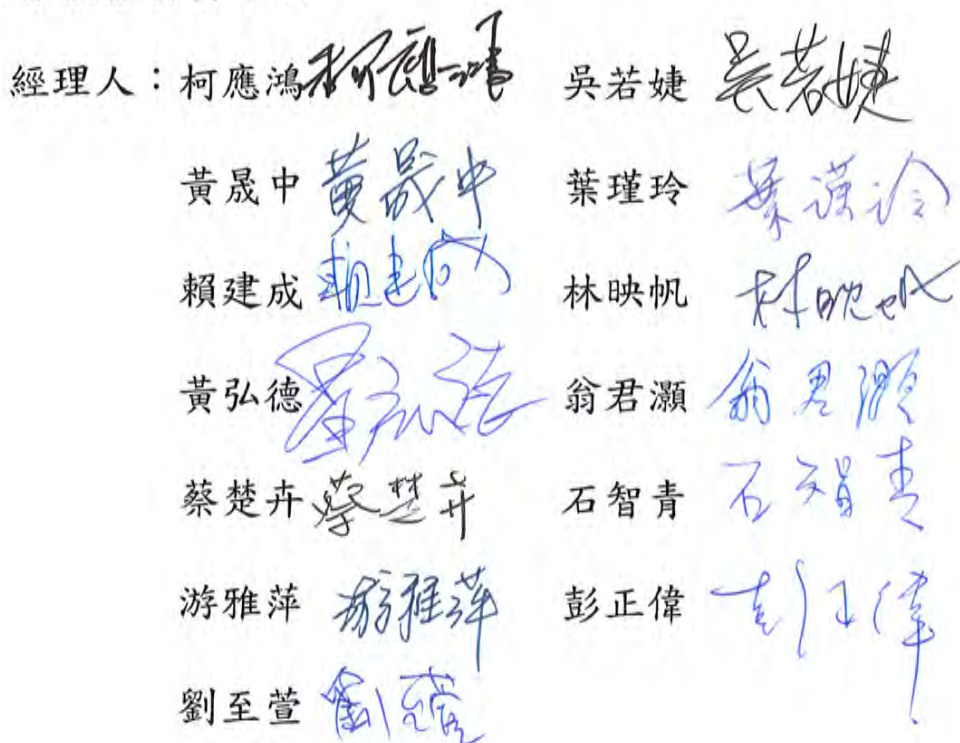 經理人：柯應鴻 柯應鴻 吳若婕 吳若婕
黃晟中 黃晟中 葉瑾玲 葉瑾玲
賴建成 賴建成 林映帆 林映帆
黃弘德 黃弘德 翁君灝 翁君灝
蔡楚卉 蔡楚卉 石智青 石智青
游雅萍 游雅萍 彭正偉 彭正偉
劉至萱 劉至萱